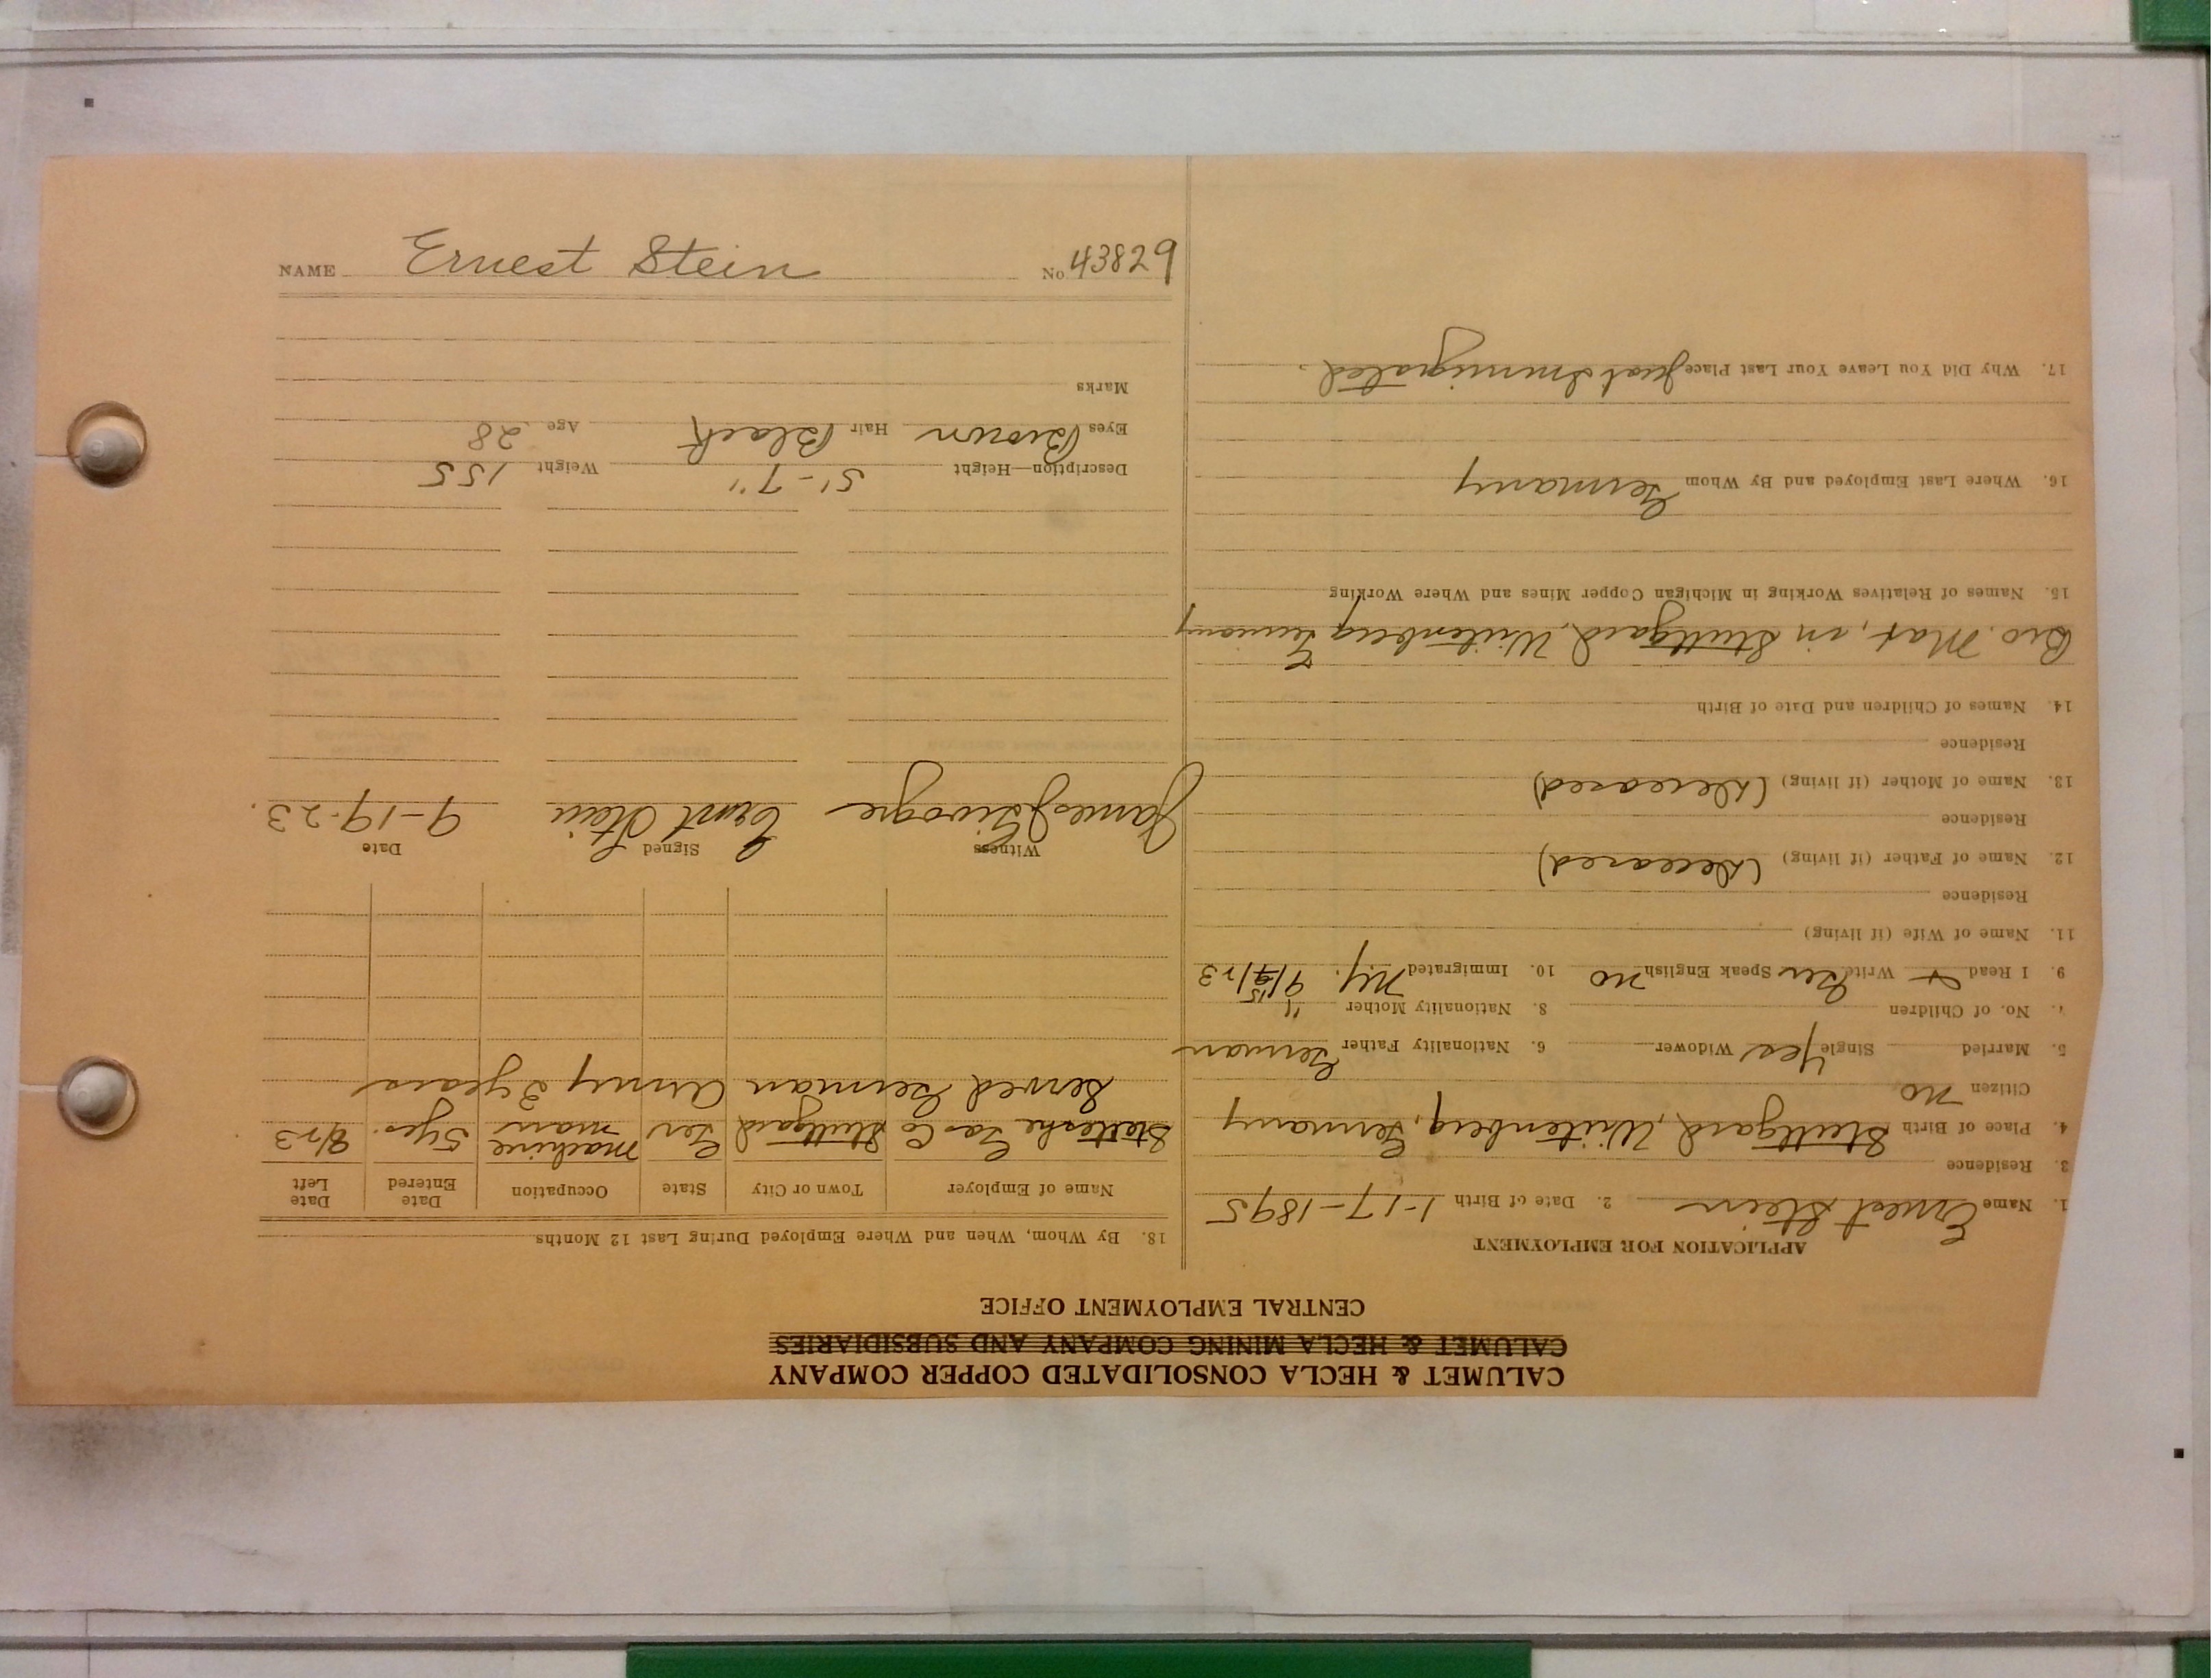 NAME Ernest Stein No 43829
CALUMET & HECLA CONSOLIDATED COPPER COMPANY
CALUMET & HECLA MINING COMPANY AND SUBSIDIARIES
CENTRAL EMPLOYMENT OFFICE
APPLICATION FOR EMPLOYMENT
1. Name Ernest Stein 2. Date of Birth 1-17-1895
3. Residence
4. Place of Birth Stuttgard, Wurtenberg, Germany
Citizen no
5. Married Single Yes Widower 6. Nationality Father German
7. No. of Children 8. Nationality Mother "
9. I Read + Write Ger Speak English no 10. Immigrated Ny. 9/15/23
11. Name of Wife (if living)
Residence
12. Name of Father (if living) (Deceased)
Residence
13. Name of Mother (if living) (Deceased)
Residence
14. Names of Children and Date of Birth
Bro. Max, in Stuttgard, Wurtenberg Germany
15. Names of Relatives Working in Michigan Copper Mines and Where Working
16. Where Last Employed and By Whom Germany
17. Why Did You Leave Your Last Place Just Immigrated.
18. By Whom, When and Where Employed During Last 12 Months
Name of Employer Town or City State Occupation Date Entered Date Left
Gas Co Stuttgard Ger machine man 5 yrs. 8/23
Served German Army 3 years
Witness Signed Date
James Ernst Stein 9-19-23.
Description—Height 5'-7" Weight 155
Eyes Brown Hair Black Age 28
Marks